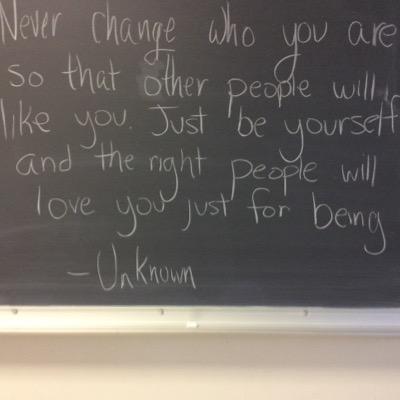 Never change who you are
so that other people will
like you. Just be yourself
and the right people will
love you just for being
- Unknown